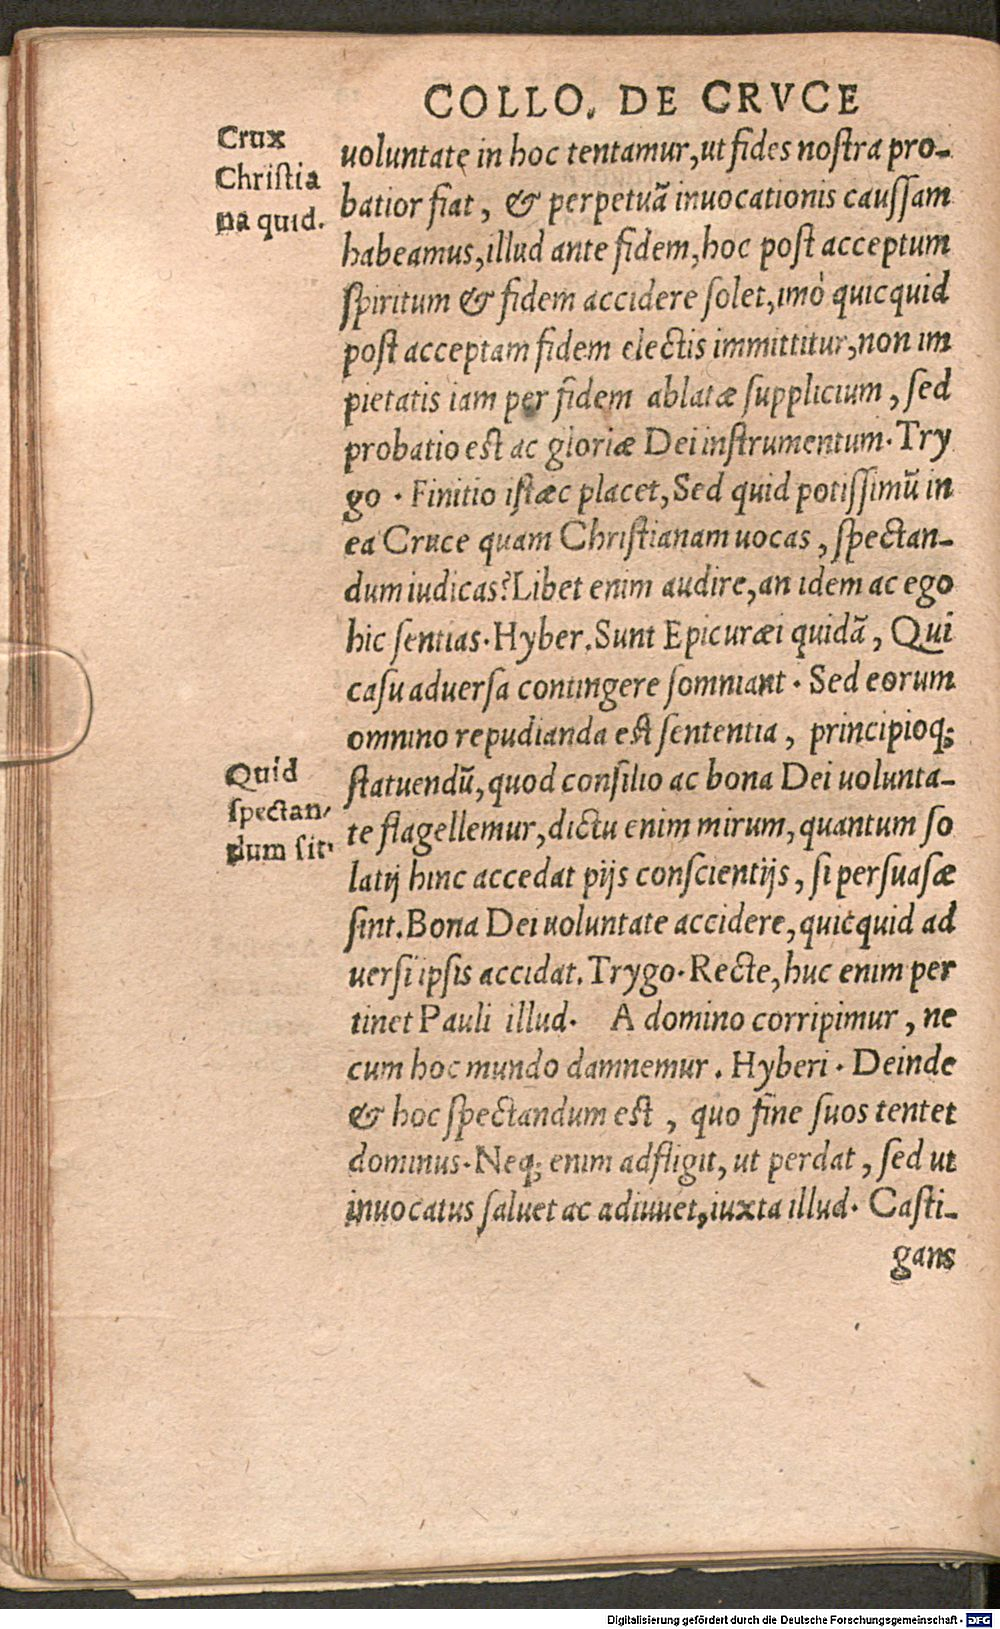 COLLO. DE CRVCE
Crux
Christia
na quid.
uoluntate in hoc tentamur, ut fides nostra pro-
batior fiat, & perpetuã inuocationis caussam
habeamus, illud ante fidem, hoc post acceptum
spiritum & fidem accidere solet, imò quicquid
post acceptam fidem electis immittitur, non im
pietatis iam per fidem ablatæ supplicium, sed
probatio est ac gloriæ Dei instrumentum. Try
go. Finitio istæc placet, Sed quid potissimũ in
ea Cruce quam Christianam uocas, spectan-
dum iudicas? Libet enim audire, an idem ac ego
hic sentias. Hyber. Sunt Epicuræi quidã, Qui
casu aduersa contingere somniant. Sed eorum
omnino repudianda est sententia, principioq;
Quid
spectan-
dum sit.
statuendũ, quod consilio ac bona Dei uolunta-
te flagellemur, dictu enim mirum, quantum so
latij hinc accedat pijs conscientijs, si persuasæ
sint. Bona Dei uoluntate accidere, quicquid ad
uersi ipsis accidat. Trygo. Recte, huc enim per
tinet Pauli illud. A domino corripimur, ne
cum hoc mundo damnemur. Hyberi. Deinde
& hoc spectandum est, quo fine suos tentet
dominus. Neq; enim adfligit, ut perdat, sed ut
inuocatus saluet ac adiuuet, iuxta illud. Casti-
gans
Digitalisierung gefördert durch die Deutsche Forschungsgemeinschaft - DFG